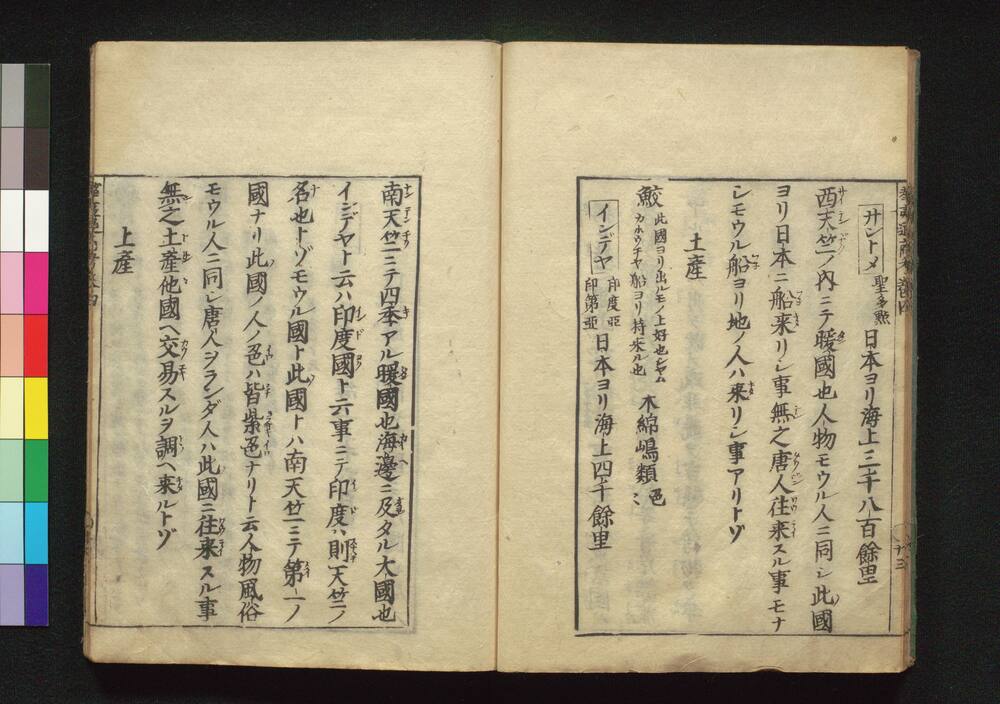 サントメ 聖多黙 日本ヨリ海上三千八百餘里
西天竺ノ内ニテ暖國也人物モウル人ニ同シ此國
ヨリ日本ニ船来リシ事無之唐人往来スル事モナ
シモウル船ヨリ地ノ人ハ来リシ事アリトゾ
土産
鮫 此國ヨリ出ルモノ上好也シャム
カホウチヤ船ヨリ持来ル也 木綿嶋類 色々
インデヤ 印度亞
印第亜 日本ヨリ海上四千餘里
南天竺ニテ四季アル暖國也海邊ニ及タル大國也
インデヤト云ハ印度國ト云事ニテ印度ハ則天竺ノ
名也トゾモウル國ト此國トハ南天竺ニテ第一ノ
國ナリ此國ノ人ノ色ハ皆紫色ナリト云人物風俗
モウル人ニ同シ唐人ヲランダ人ハ此國ニ往来スル事
無之土產他國ヘ交易スルヲ調ヘ来ルトゾ
土産
十三